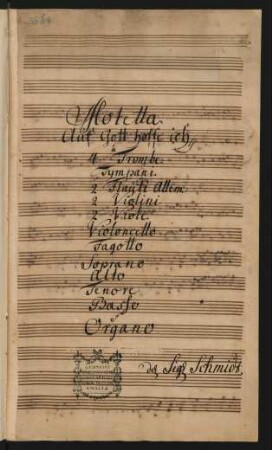 Motetta
Auf Gott hoffe ich
a
4 Trombe
Tympani
2 Flauti Allem:
2 Violini
2 Viole
Violoncello
Fagotto
Soprano
Alto
Tenore
Basso
e
Organo
del Sigr Schmidt